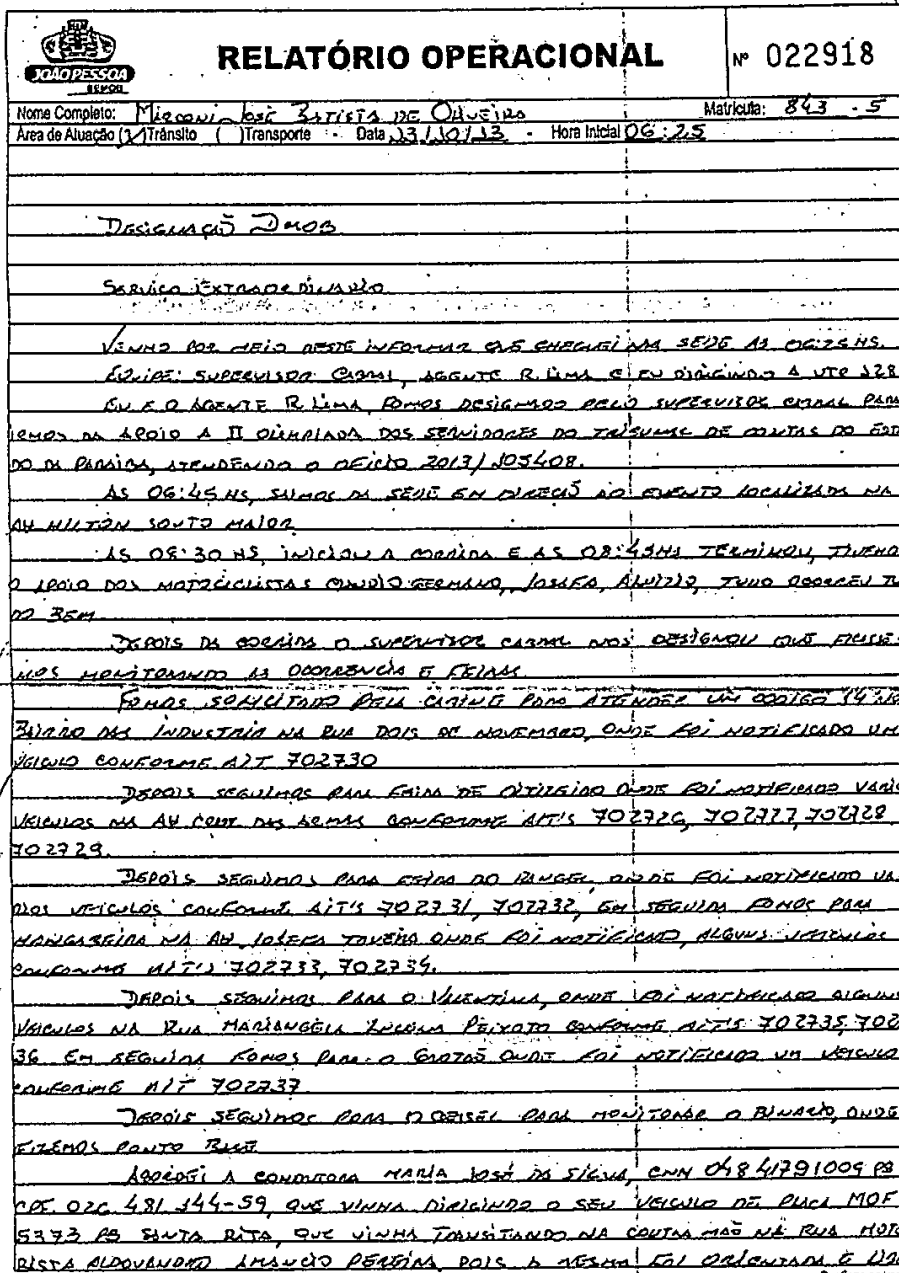 JOÃO PESSOA
SEMOB
RELATÓRIO OPERACIONAL
Nº 022918
Nome Completo: Mirconi José Batista de Oliveira Matrícula: 843 - 5
Área de Atuação (X) Trânsito ( ) Transporte - Data 13/10/13 - Hora Inicial 06:25
Designação Dmob
Serviço Extraordinário
Venho por meio deste informar que cheguei na sede as 06:25 hs.
Equipe: Supervisor Cabral, agente R. Lima e eu dirigindo a UTP 128
Eu e o agente R. Lima, fomos designados pelo supervisor Cabral para
irmos da apoio a II Olimpiada dos servidores do Tribunal de Contas do Esta
do da Paraiba, atendendo o oficio 2013/105408.
As 06:45 hs, saimos da sede em direção ao evento localizada na
Av Hilton Souto Maior
As 08:30 hs iniciou a corrida e as 08:45hs terminou, tivemo
o apoio dos motociclistas Claudio Germano, Josafa, Aluizio, tudo ocorreu tu
do bem
Depois da corrida o supervisor Cabral nos designou que ficasse
mos monitorando as ocorrencia e feiras.
Fomos solicitado pela para atender um codigo 14 no
Bairro das Industria na Rua Dois de Novembro, onde foi notificado um
veiculo conforme AIT 702730
Depois seguimos para feira de Oitizeiro onde foi notificado vario
veiculos na Av Cont das Armas conforme AIT's 702726, 702727, 702728
702729.
Depois seguimos para feira do Rangel onde foi notificado va
rios veiculos conforme AIT's 702731, 702732, em seguida fomos para
Mangabeira na Av Josefa Taveira onde foi notificado, alguns veiculos
conforme AIT's 702733, 702734.
Depois seguimos para o Valentina, onde foi notificado alguns
veiculos na Rua Mariangela Lucena Peixoto conforme AIT's 702735, 702
36 Em seguida fomos para o Grotão onde foi notificado um veiculo
conforme AIT 702737
Depois seguimos para o Geisel para monitorar o binario, onde
fizemos ponto base
Abordei a condutora Maria José da Silva, CNH 04841791009 PB
CPF 026 481 144-59, que vinha dirigindo o seu veiculo de placa MOF
5373 PB Santa Rita, que vinha transitando na contra mão na Rua Moto
rista Aldovandro Amancio Pereira, pois a mesma foi orientada e